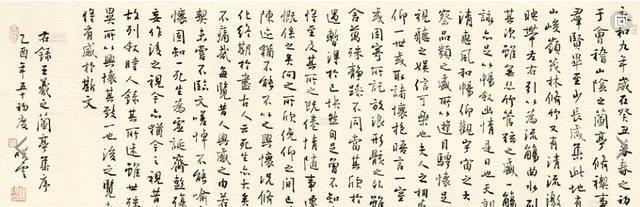 永和九年歲在癸丑暮春之初
于會稽山陰之蘭亭脩稧事
群賢畢至少長咸集此地有
山峻領茂林脩竹又有清流激
映帶左右引以為流觴曲水列
其次雖無絲竹管弦之盛一觴
詠亦足以暢敘幽情是日也天朗
清惠風和暢仰觀宇宙之大
察品類之盛所以遊目騁懷足
視聽之娛信可樂也夫人之相
仰一世或取諸懷抱晤言一室
或因寄所託放浪形骸之外雖
舍萬殊靜躁不同當其欣於
遇暫得於己快然自足曾不知
將至及其所之既倦情隨事遷
慨係之矣向之所欣俛仰之間已
陳迹猶不能不以之興懷況脩
化終期於盡古人云死生亦大矣
不痛哉每覽昔人興感之由若
契未嘗不臨文嗟悼不能喻
懷固知一死生為虛誕齊彭殤
妄作後之視今亦猶今之視昔
故列敘時人錄其所述雖世殊
異所以興懷其致一也後之覽
將有感於斯文
右錄王羲之蘭亭集序
乙酉年五十初度